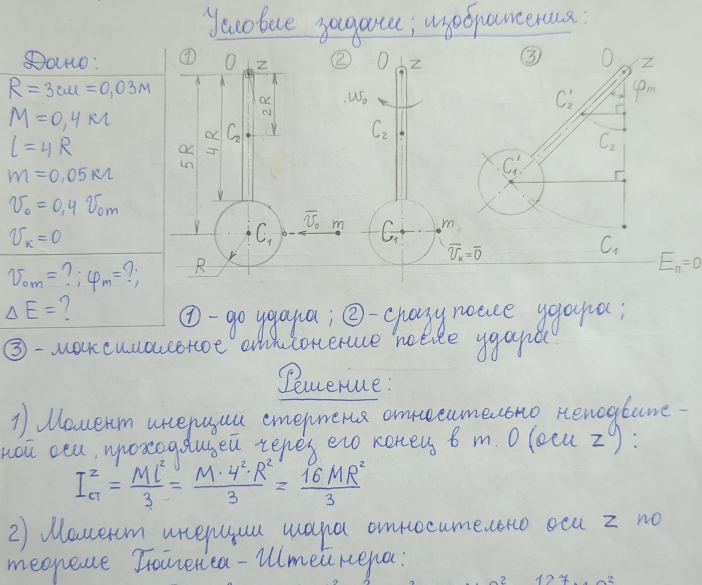 Условие задачи; изображения:
Дано:
R = 3см = 0,03м
M = 0,4 кг
l = 4R
m = 0,05 кг
v₀ = 0,4 v₀m
vк = 0
v₀m = ?; φm = ?;
ΔE = ?
① O z
5R 4R 2R
C₂
C₁ v̄₀ m
R
② O z
ω₀
C₂
C₁ m
v̄к = 0̄
③ O z
φm
C₂' C₂
C₁' C₁
Eп = 0
① - до удара; ② - сразу после удара;
③ - максимальное отклонение после удара.
Решение:
1) Момент инерции стержня относительно неподвиж-
ной оси, проходящей через его конец в т. О (оси z):
I^z_ст = Ml²/3 = M·4²·R²/3 = 16MR²/3
2) Момент инерции шара относительно оси z по
теореме Гюйгенса-Штейнера: